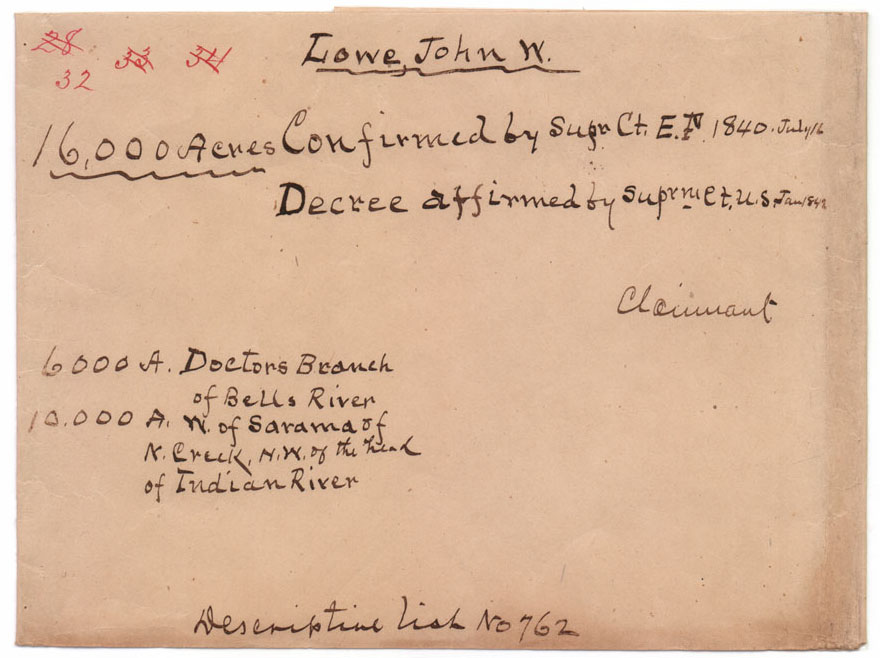 28 33 34
32
Lowe, John W.
16,000 Acres Confirmed by Supr Ct. E. F. 1840. July 16
Decree affirmed by Suprm Ct. U.S. Jan 1842
Claimant
6000 A. Doctors Branch
of Bells River
10.000 A. W. of Sarama of
N. Creek, N.W. of the head
of Indian River
Descriptive List No 762